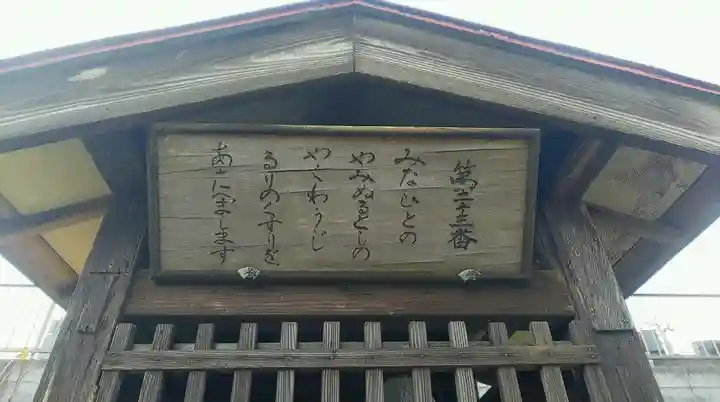 第三十三番
みなひとの
やみぬるとしの
やくわうじ
るりのくすりを
あとにまします